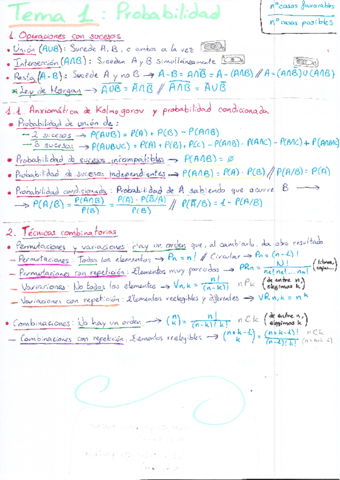 Tema 1: Probabilidad
nº casos favorables
nº casos posibles
1. Operaciones con sucesos
• Unión (A∪B): Sucede A, B, o ambos a la vez
• Intersección (A∩B): Suceden A y B simultáneamente
• Resta (A-B): Sucede A y no B → A-B = A∩B̅ = A-(A∩B) //
* Ley de Morgan → 
1.1. Axiomática de Kolmogorov y probabilidad condicionada
• Probabilidad de unión de:
- 2 sucesos → P(A∪B) = P(A) + P(B) - P(A∩B)
- 3 sucesos → P(A∪B∪C) = P(A) + P(B) + P(C) - P(A∩B) - P(A∩C) - P(B∩C) + P(A∩B∩C)
• Probabilidad de sucesos incompatibles → P(A∩B) = ø
• Probabilidad de sucesos independientes → P(A∩B) = P(A) · P(B) // P(A/B) = P(A)
• Probabilidad condicionada: Probabilidad de A sabiendo que ocurre B
→ P(A/B) = P(A∩B)/P(B) = P(A) · P(B/A)/P(B) // P(A̅/B) = 1 - P(A/B)
2. Técnicas combinatorias
• Permutaciones y variaciones: Hay un orden que, al cambiarlo, da otro resultado
- Permutaciones: Todos los elementos → Pn = n! // Circular → Pn = (n-1)!
- Permutaciones con repetición: Elementos muy parecidos →
- Variaciones: No todos los elementos → Vn,k = n!/(n-k)! nPk (de entre n, elegimos k)
- Variaciones con repetición: Elementos reelegibles y diferentes → VRn,k = n^k
• Combinaciones: No hay un orden → (n k) = n!/(n-k)! k! nCk (de entre n, elegimos k)
- Combinaciones con repetición: Elementos reelegibles →